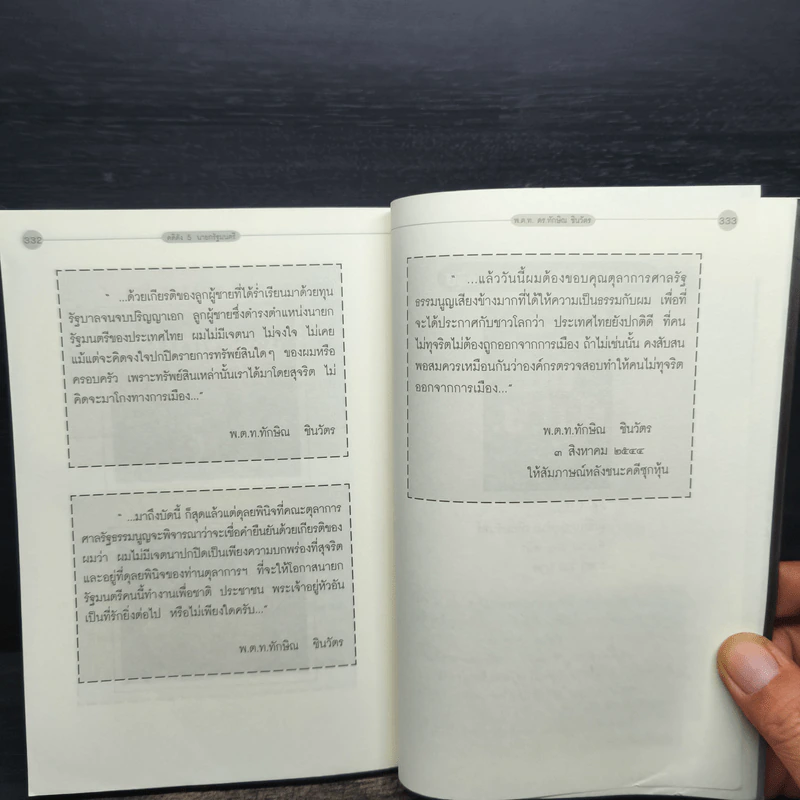 332
คดีดัง 5 นายกรัฐมนตรี
" ...ด้วยเกียรติของลูกผู้ชายที่ได้ร่ำเรียนมาด้วยทุน
รัฐบาลจนจบปริญญาเอก ลูกผู้ชายซึ่งดำรงตำแหน่งนายก
รัฐมนตรีของประเทศไทย ผมไม่มีเจตนา ไม่จงใจ ไม่เคย
แม้แต่จะคิดจงใจปกปิดรายการทรัพย์สินใดๆ ของผมหรือ
ครอบครัว เพราะทรัพย์สินเหล่านั้นเราได้มาโดยสุจริต ไม่
คิดจะมาโกงทางการเมือง..."
พ.ต.ท.ทักษิณ ชินวัตร
" ...มาถึงบัดนี้ ก็สุดแล้วแต่ดุลยพินิจที่คณะตุลาการ
ศาลรัฐธรรมนูญจะพิจารณาว่าจะเชื่อคำยืนยันด้วยเกียรติของ
ผมว่า ผมไม่มีเจตนาปกปิดเป็นเพียงความบกพร่องที่สุจริต
และอยู่ที่ดุลยพินิจของท่านตุลาการฯ ที่จะให้โอกาสนายก
รัฐมนตรีคนนี้ทำงานเพื่อชาติ ประชาชน พระเจ้าอยู่หัวอัน
เป็นที่รักยิ่งต่อไป หรือไม่เพียงใดครับ..."
พ.ต.ท.ทักษิณ ชินวัตร
พ.ต.ท. ดร.ทักษิณ ชินวัตร
333
" ...แล้ววันนี้ผมต้องขอบคุณตุลาการศาลรัฐ
ธรรมนูญเสียงข้างมากที่ได้ให้ความเป็นธรรมกับผม เพื่อที่
จะได้ประกาศกับชาวโลกว่า ประเทศไทยยังปกติดี ที่คน
ไม่ทุจริตไม่ต้องถูกออกจากการเมือง ถ้าไม่เช่นนั้น คงสับสน
พอสมควรเหมือนกันว่าองค์กรตรวจสอบทำให้คนไม่ทุจริต
ออกจากการเมือง..."
พ.ต.ท.ทักษิณ ชินวัตร
๓ สิงหาคม ๒๕๔๔
ให้สัมภาษณ์หลังชนะคดีซุกหุ้น